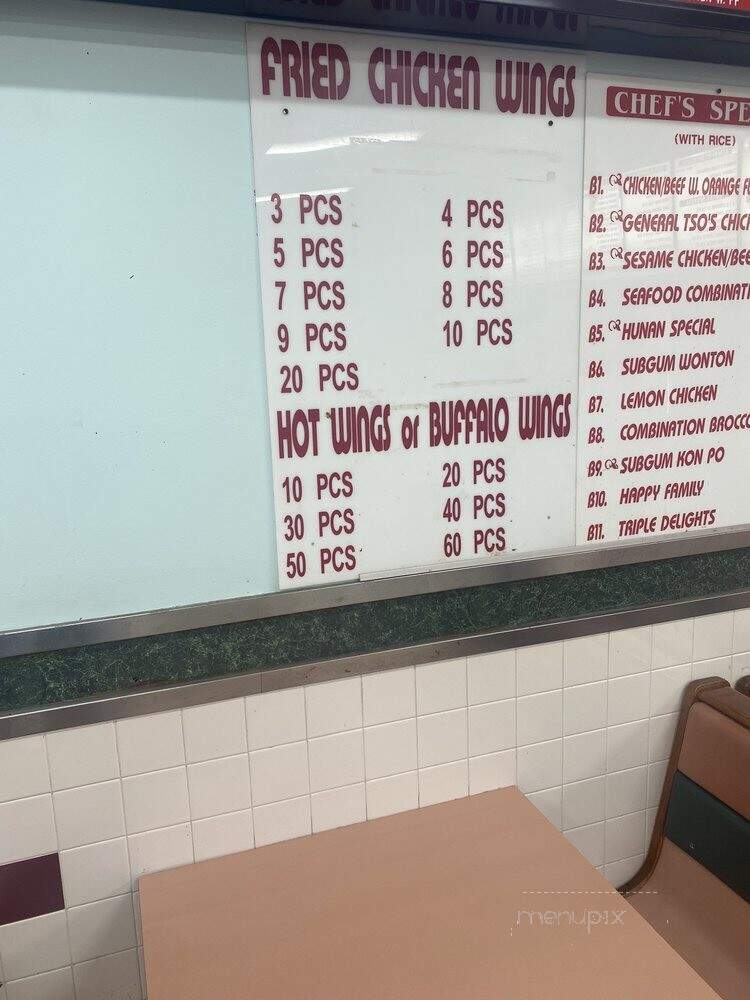 FRIED CHICKEN WINGS
3 PCS 4 PCS
5 PCS 6 PCS
7 PCS 8 PCS
9 PCS 10 PCS
20 PCS
HOT WINGS or BUFFALO WINGS
10 PCS 20 PCS
30 PCS 40 PCS
50 PCS 60 PCS
CHEF'S SPE
(WITH RICE)
B1. CHICKEN/BEEF W. ORANGE F
B2. GENERAL TSO'S CHIC
B3. SESAME CHICKEN/BEE
B4. SEAFOOD COMBINATI
B5. HUNAN SPECIAL
B6. SUBGUM WONTON
B7. LEMON CHICKEN
B8. COMBINATION BROCCO
B9. SUBGUM KON PO
B10. HAPPY FAMILY
B11. TRIPLE DELIGHTS
menupix